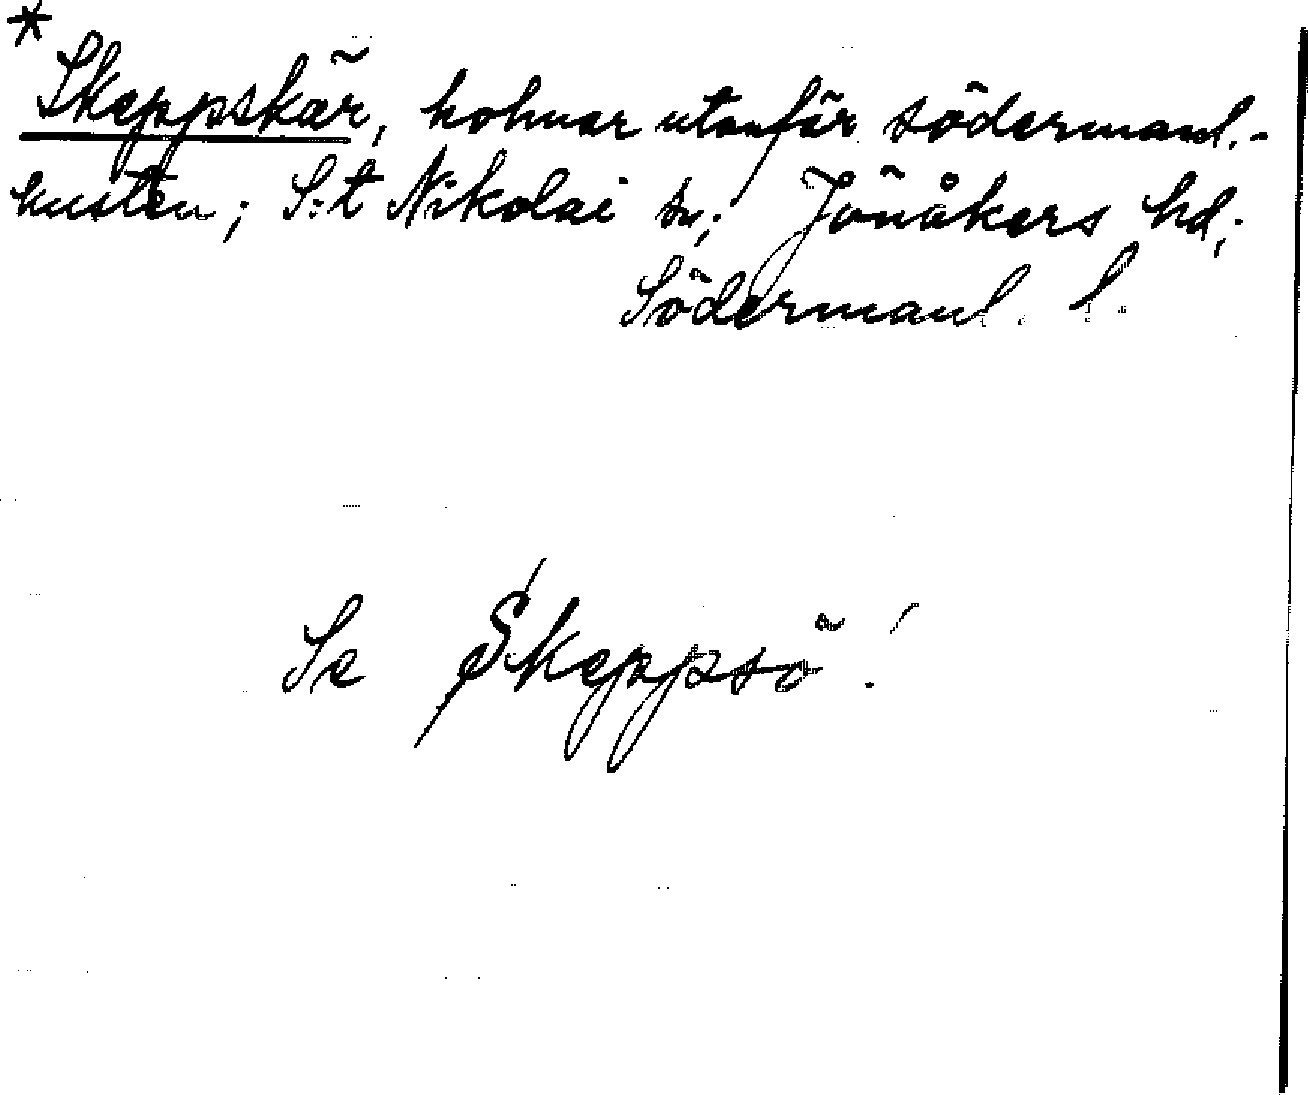 *
Skeppskär, holmar utanför södermanl.-
kusten; S:t Nikolai sn; Jönåkers hd;
Södermanl. l.
Se Skeppsö!